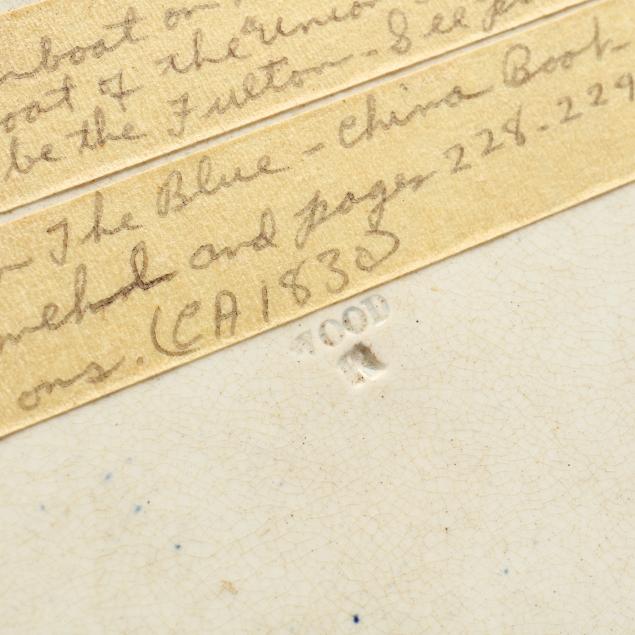 boat on
oat of the Union
be the Fulton - See
The Blue - China Book -
and pages 228-229
ons. (CA 1830)
WOOD